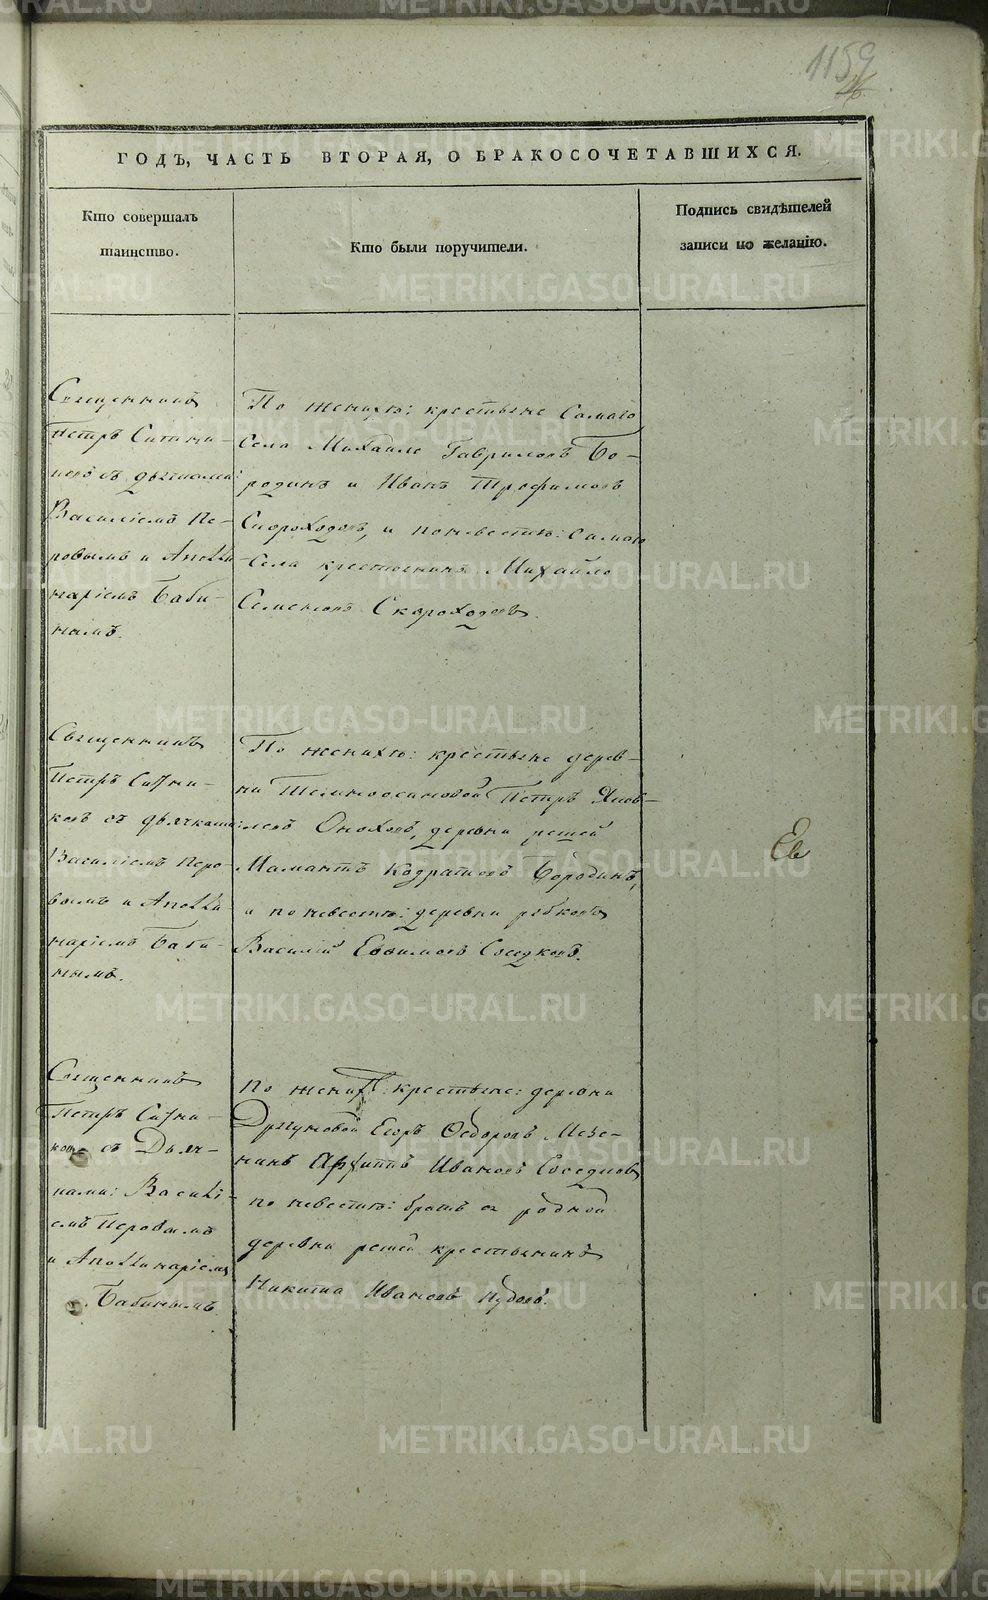 1159
ГОДЪ, ЧАСТЬ ВТОРАЯ, О БРАКОСОЧЕТАВШИХСЯ.
Кто совершалъ
таинство.
Кто были поручители.
Подпись свидѣтелей
записи по желанію.
Священникъ
Петръ Ситни-
ковъ съ дьячками
Василіемъ Пе-
ровымъ и Аполли
наріемъ Баби-
нымъ.
По женихѣ: крестьяне самаго
села Михайло Гавриловъ Бо-
родинъ и Иванъ Трофимовъ
Скороходовъ, и по невестѣ: самаго
села крестьянинъ Михайло
Семеновъ Скороходовъ.
Священникъ
Петръ Ситни-
ковъ съ дьячками:
Василіемъ Перо-
вымъ и Аполли
наріемъ Баби-
нымъ.
По женихѣ: крестьяне дерев-
ни Петръ Яков-
левъ Оноховъ, деревни решей
Мамантъ Кодратовъ Бородинъ,
и по невестѣ: деревни рябковъ
Василій Евѳимовъ Соседковъ.
Священникъ
Петръ Ситни-
ковъ съ Дьяч-
ками: Василі-
емъ Перовымъ
и Аполлинаріемъ
Бабинымъ.
По жених: крестьяне: деревни
Егоръ Ѳедоровъ Мезе-
нинъ Архиппъ Ивановъ Соседковъ
по невестѣ: братъ ея родной
деревни решей крестьянинъ
Никита Ивановъ
METRIKI.GASO-URAL.RU